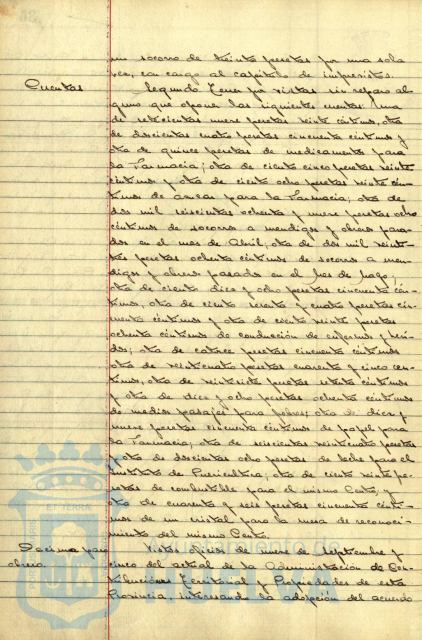 un socorro de treinta pesetas por una sola
vez, con cargo al capítulo de imprevistos.
Cuentas
Segundo. Tener por vistas sin reparo al
guno que oponer las siguientes cuentas: Una
de setecientas nueve pesetas veinte céntimos, otra
de doscientas cuatro pesetas cincuenta céntimos y
otra de quince pesetas de medicamentos para
la Farmacia; otra de ciento cinco pesetas veinte
céntimos y otra de ciento ocho pesetas veinte cén
timos de para la Farmacia; otra de
dos mil seiscientas ochenta y nueve pesetas ocho
céntimos de socorros a mendigos y obreros para
dos en el mes de Abril; otra de dos mil veinti
trés pesetas ochenta céntimos de socorros a men
digos y obreros parados en el mes de Mayo;
otra de ciento diez y ocho pesetas cincuenta cén
timos, otra de ciento y cuatro pesetas cin
cuenta céntimos y otra de ciento veinte pesetas
ochenta céntimos de conducción de enfermos y
dos; otra de catorce pesetas cincuenta céntimos
otra de veinticuatro pesetas cuarenta y cinco cen
timos, otra de pesetas setenta céntimos
y otra de diez y ocho pesetas ochenta céntimos
de medios pasajes para pobres; otra de diez y
nueve pesetas cincuenta céntimos de papel para
la Farmacia; otra de seiscientas veinticuatro pesetas
y otra de doscientas ocho pesetas de leche para el
Instituto de Puericultura; otra de ciento veinte pe
setas de combustible para el mismo Centro, y
otra de cuarenta y seis pesetas cincuenta cénti
mos de un cristal para la mesa de reconoci
miento del mismo Centro.
Décima paro
obrero.
Vistos oficios de nueve de Septiembre y
cinco del actual de la Administración de Con
tribuciones Territorial y Propiedades de esta
Provincia interesando la adopción del acuerdo